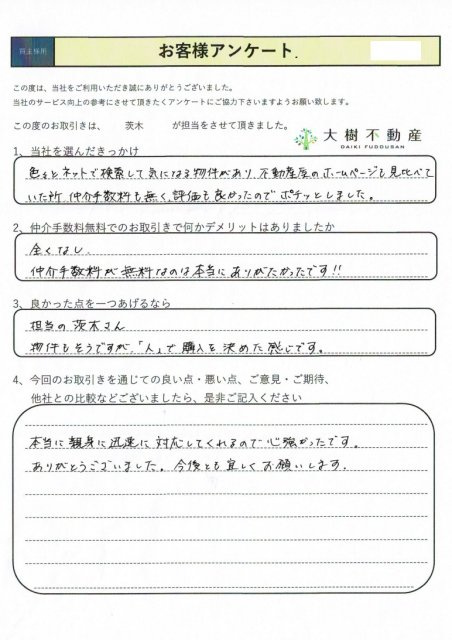 買主様用
お客様アンケート.
この度は、当社をご利用いただき誠にありがとうございました。
当社のサービス向上の参考にさせて頂きたくアンケートにご協力下さいますようお願い致します。
この度のお取引きは、 茨木 が担当をさせて頂きました。
大樹不動産
DAIKI FUDOUSAN
1、当社を選んだきっかけ
色々とネットで検索して気になる物件があり、不動産屋のホームページも見比べて
いた所、仲介手数料も無く、評価も良かったのでポチッとしました。
2、仲介手数料無料でのお取引きで何かデメリットはありましたか
全くなし、
仲介手数料が無料なのは本当にありがたかったです!!
3、良かった点を一つあげるなら
担当の茨木さん
物件もそうですが、「人」で購入を決めた感じです。
4、今回のお取引きを通じての良い点・悪い点、ご意見・ご期待、
他社との比較などございましたら、是非ご記入ください
本当に親身に迅速に対応してくれるので心強かったです。
ありがとうございました。今後とも宜しくお願いします.